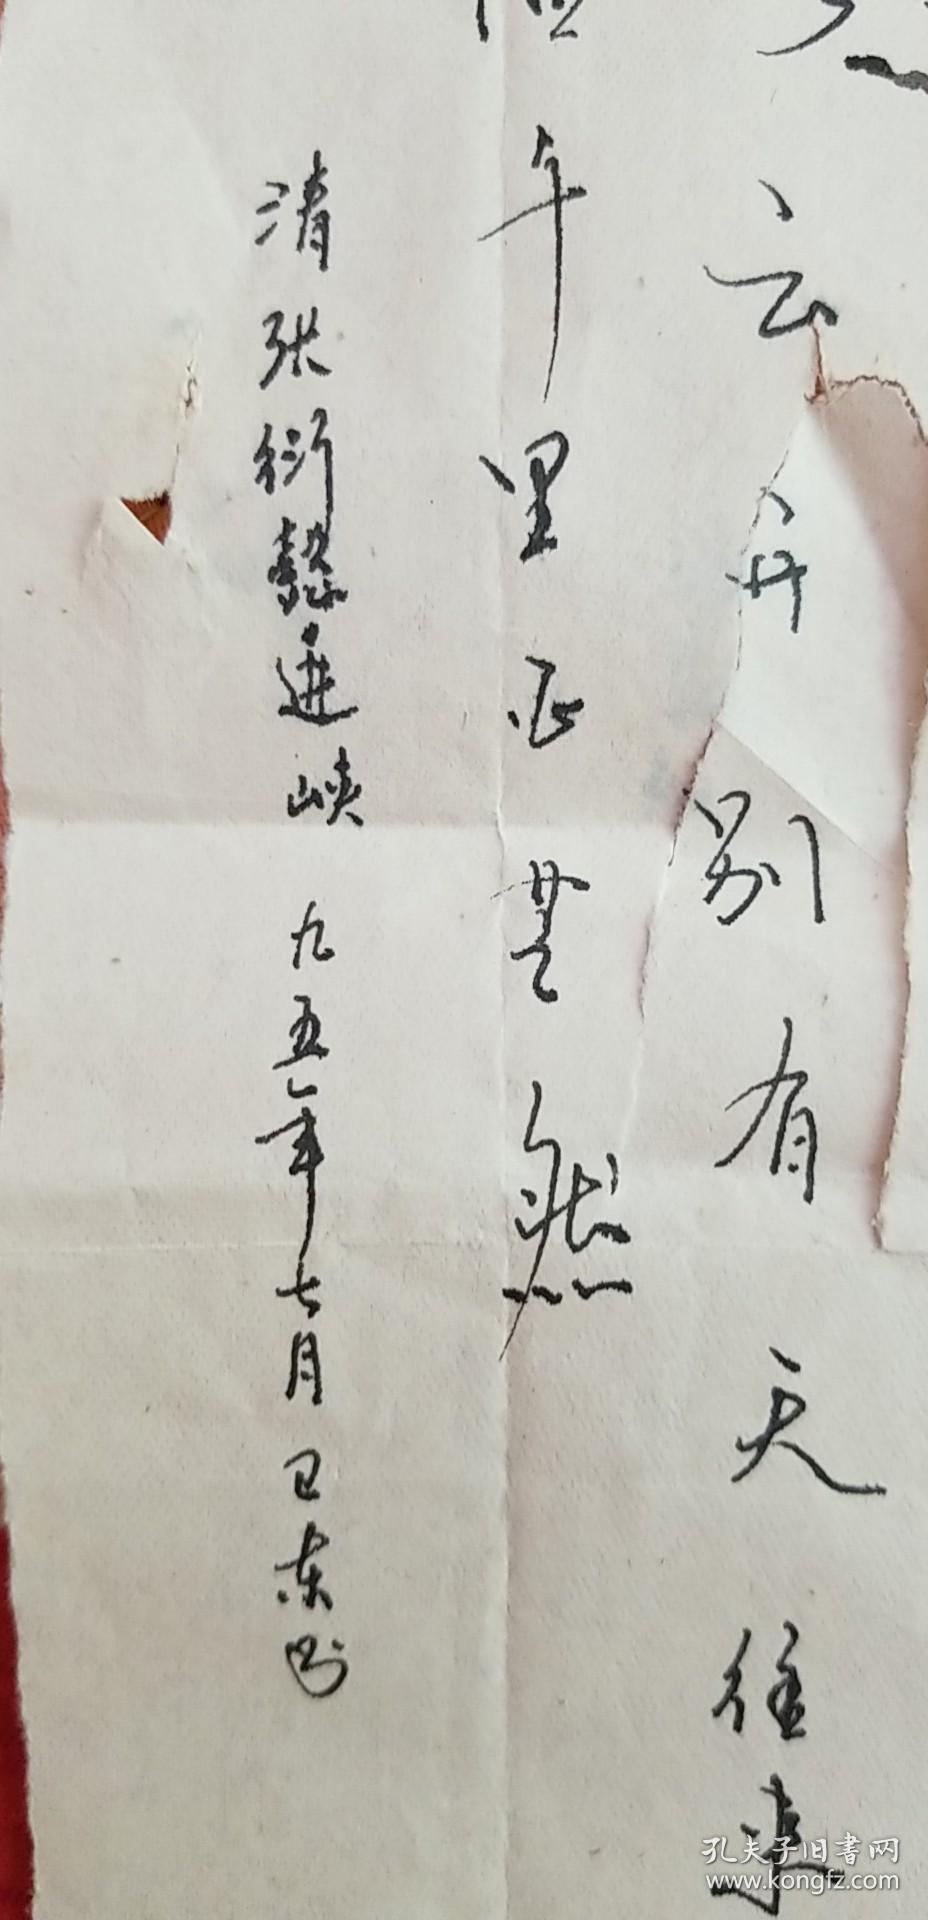 云开别有天往来
千里正茫然
清张衍懿进峡 九五年七月卫东书
孔夫子旧书网
www.kongfz.com